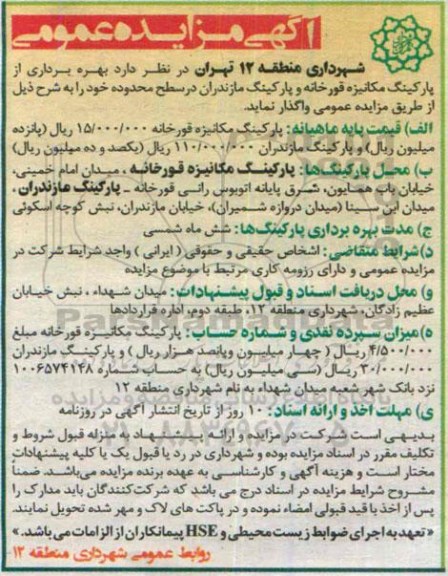 آگهی مزایده عمومی
شهرداری منطقه ۱۲ تهران در نظر دارد بهره برداری از
پارکینگ مکانیزه قورخانه و پارکینگ مازندران درسطح محدوده خود را به شرح ذیل
از طریق مزایده عمومی واگذار نماید.
الف) قیمت پایه ماهیانه: پارکینگ مکانیزه قورخانه ۱۵/۰۰۰/۰۰۰ ریال (پانزده
میلیون ریال) و پارکینگ مازندران ۱۱۰/۰۰۰/۰۰۰ ریال (یکصد و ده میلیون ریال)
ب) محل پارکینگ‌ها: پارکینگ مکانیزه قورخانه ، میدان امام خمینی،
خیابان باب همایون، شرق پایانه اتوبوس رانی قورخانه - پارکینگ مازندران ،
میدان ابن سینا (میدان دروازه شمیران)، خیابان مازندران، نبش کوچه اسکوئی
ج) مدت بهره برداری پارکینگ‌ها: شش ماه شمسی
د)شرایط متقاضی: اشخاص حقیقی و حقوقی ( ایرانی ) واجد شرایط شرکت در
مزایده عمومی و دارای رزومه کاری مرتبط با موضوع مزایده
و) محل دریافت اسناد و قبول پیشنهادات: میدان شهداء ، نبش خیابان
عظیم زادگان، شهرداری منطقه ۱۲، طبقه دوم، اداره قراردادها
ه)میزان سپرده نقدی و شماره حساب: پارکینگ مکانیزه قورخانه مبلغ
۴/۵۰۰/۰۰۰ ریال ( چهار میلیون وپانصد هزار ریال ) و پارکینگ مازندران
۳۰/۰۰۰/۰۰۰ ریال (سی میلیون ریال) به حساب شماره ۱۰۰۶۵۷۴۱۴۸
نزد بانک شهر شعبه میدان شهداء به نام شهرداری منطقه ۱۲
ی) مهلت اخذ و ارائه اسناد: ۱۰ روز از تاریخ انتشار آگهی در روزنامه
بدیهی است شرکت در مزایده و ارائه پیشنهاد به منزله قبول شروط و
تکلیف مقرر در اسناد مزایده بوده و شهرداری در رد یا قبول یک یا کلیه پیشنهادات
مختار است و هزینه آگهی و کارشناسی به عهده برنده مزایده می‌باشد. ضمنا
مشروح شرایط مزایده در اسناد درج می باشد که شرکت‌کنندگان باید مدارک را
پس از اخذ با قید قبولی امضاء نموده و در پاکت های لاک و مهر شده تحویل نمایند.
«تعهد به اجرای ضوابط زیست محیطی و HSE پیمانکاران از الزامات می باشد.»
روابط عمومی شهرداری منطقه ۱۲